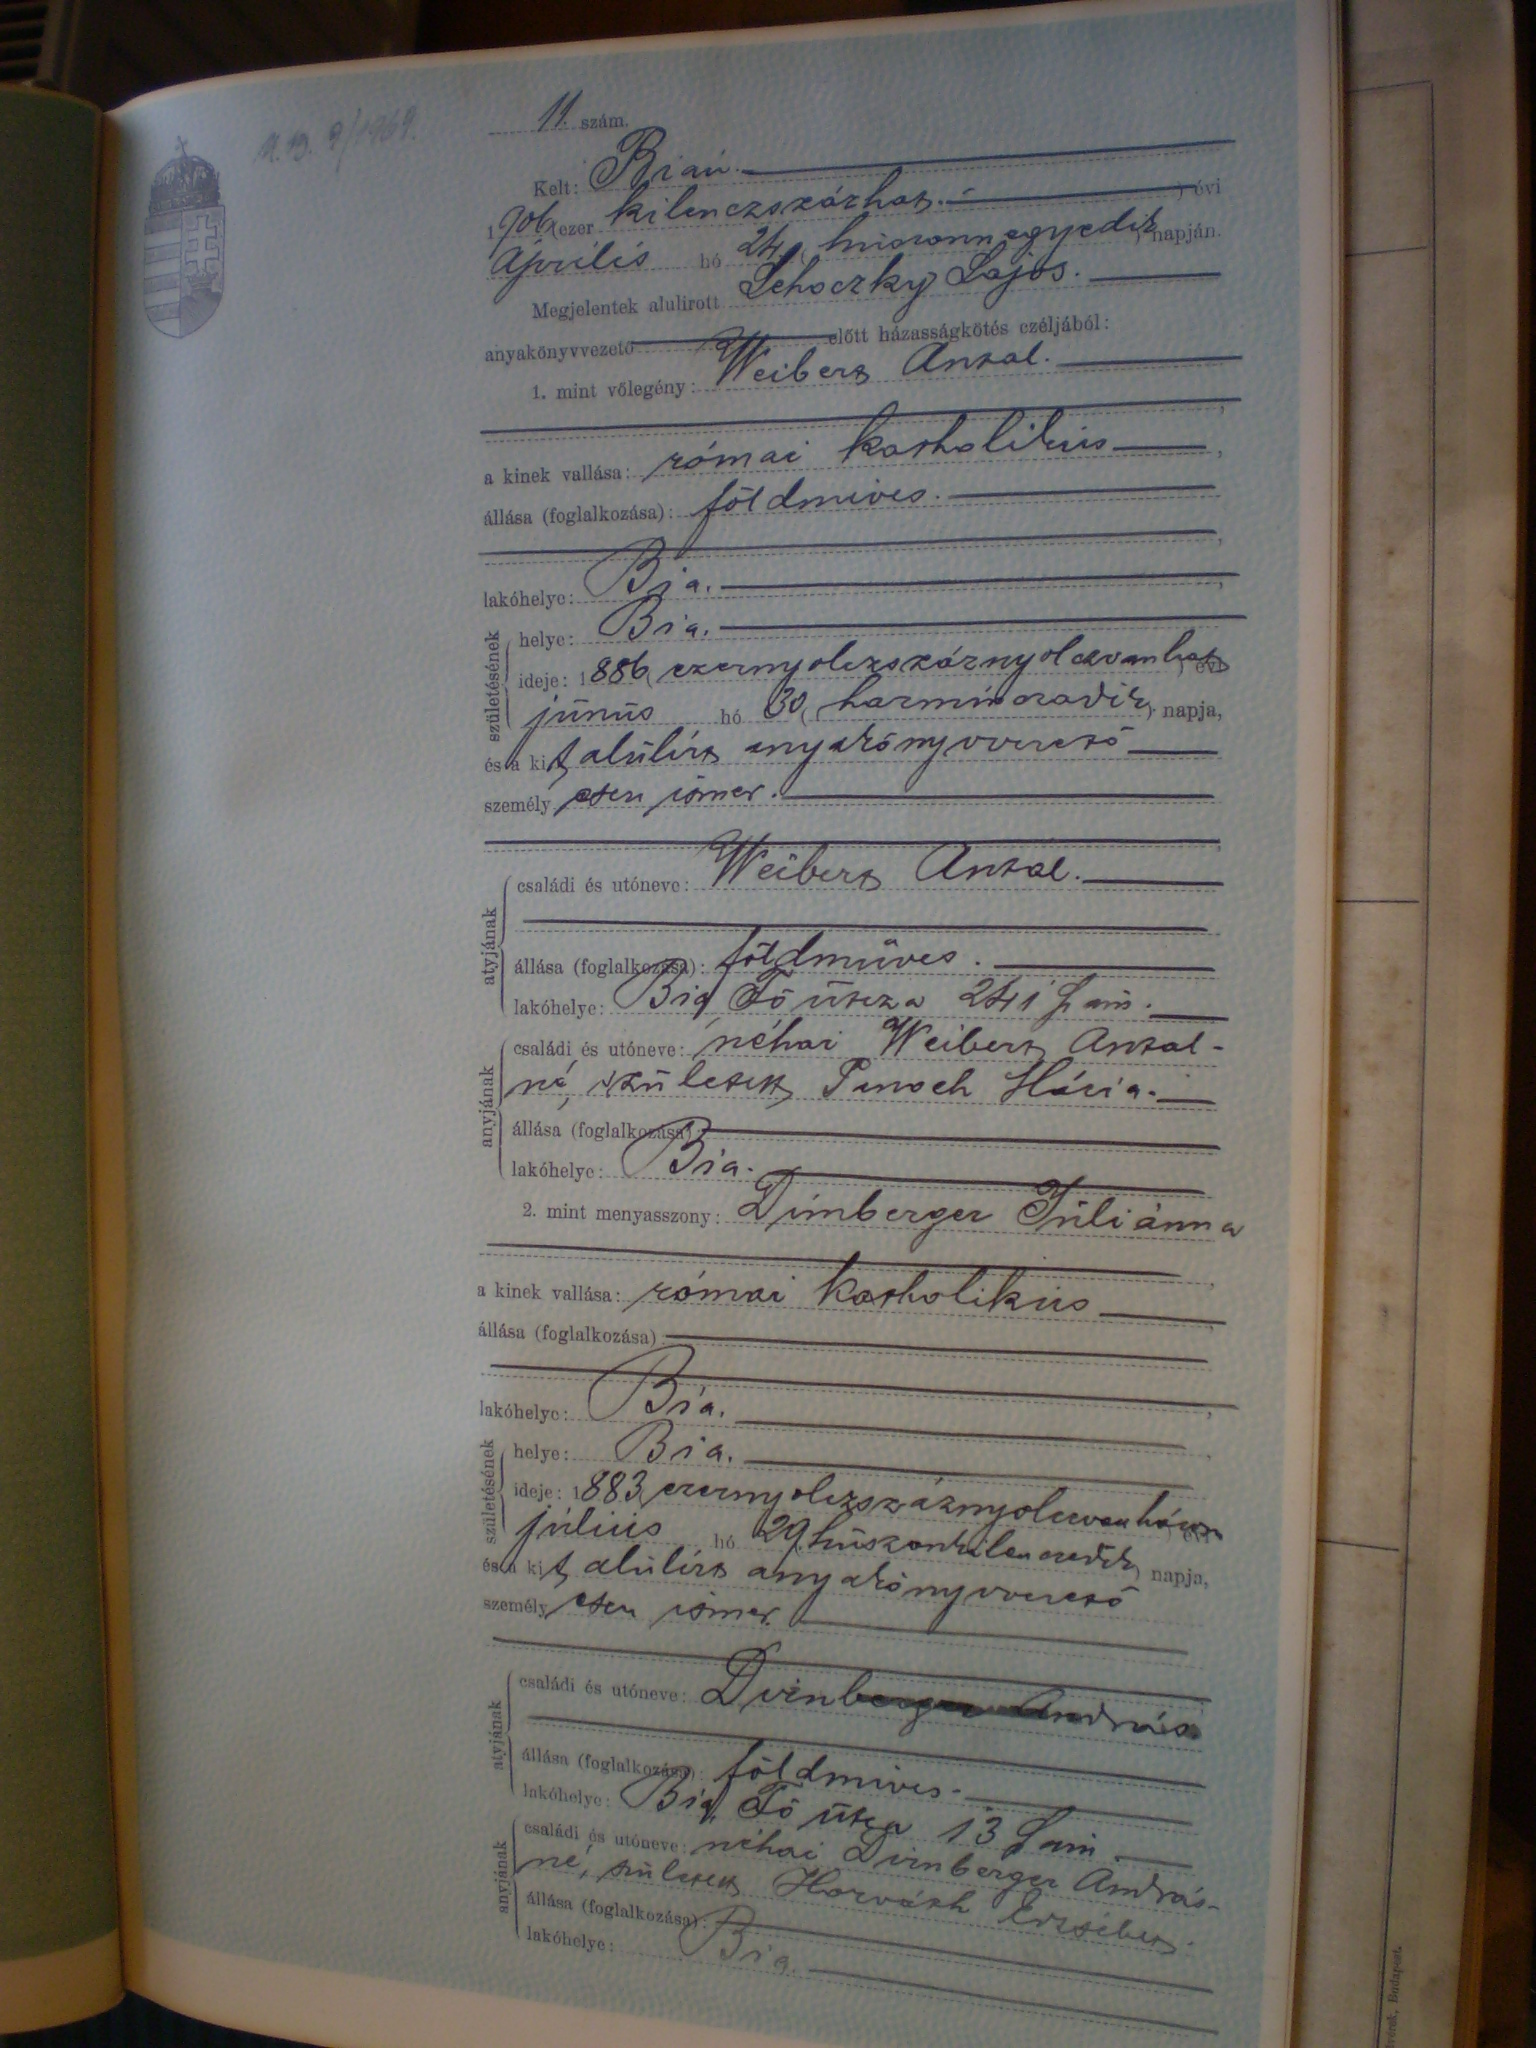 11. szám.
Kelt: Bián.
1906 (ezer kilenczszázhat.) évi
április hó 24 (huszonnegyedik) napján.
Megjelentek alulirott Lehoczky Lajos.
anyakönyvvezető előtt házasságkötés czéljából:
1. mint vőlegény: Weibert Antal.
a kinek vallása: római katholikus
állása (foglalkozása): földmives.
lakóhelye: Bia.
születésének
helye: Bia.
ideje: 1886 (ezernyolczszáznyolczvanhat) évi
június hó 30 (harminczadik) napja,
és a kit alulírt anyakönyvvezető
személyesen ismer.
atyjának
családi és utóneve: Weibert Antal.
állása (foglalkozása): földműves.
lakóhelye: Bia, Fő útcza 241 szám.
anyjának
családi és utóneve: néhai Weibert Antal-
né, született Mária.
állása (foglalkozása):
lakóhelye: Bia.
2. mint menyasszony: Dirnberger Júliánna
a kinek vallása: római katholikus
állása (foglalkozása):
lakóhelye: Bia.
születésének
helye: Bia.
ideje: 1883 (ezernyolczszáznyolczvanhárom) évi
július hó 29 (huszonkilenczedik) napja,
és a kit alulírt anyakönyvvezető
személyesen ismer.
atyjának
családi és utóneve: Dirnberger András
állása (foglalkozása): földmives.
lakóhelye: Bia, Fő útcza 13 szám.
anyjának
családi és utóneve: néhai Dirnberger András-
né, született Horváth Erzsébet.
állása (foglalkozása):
lakóhelye: Bia.
Budapest.